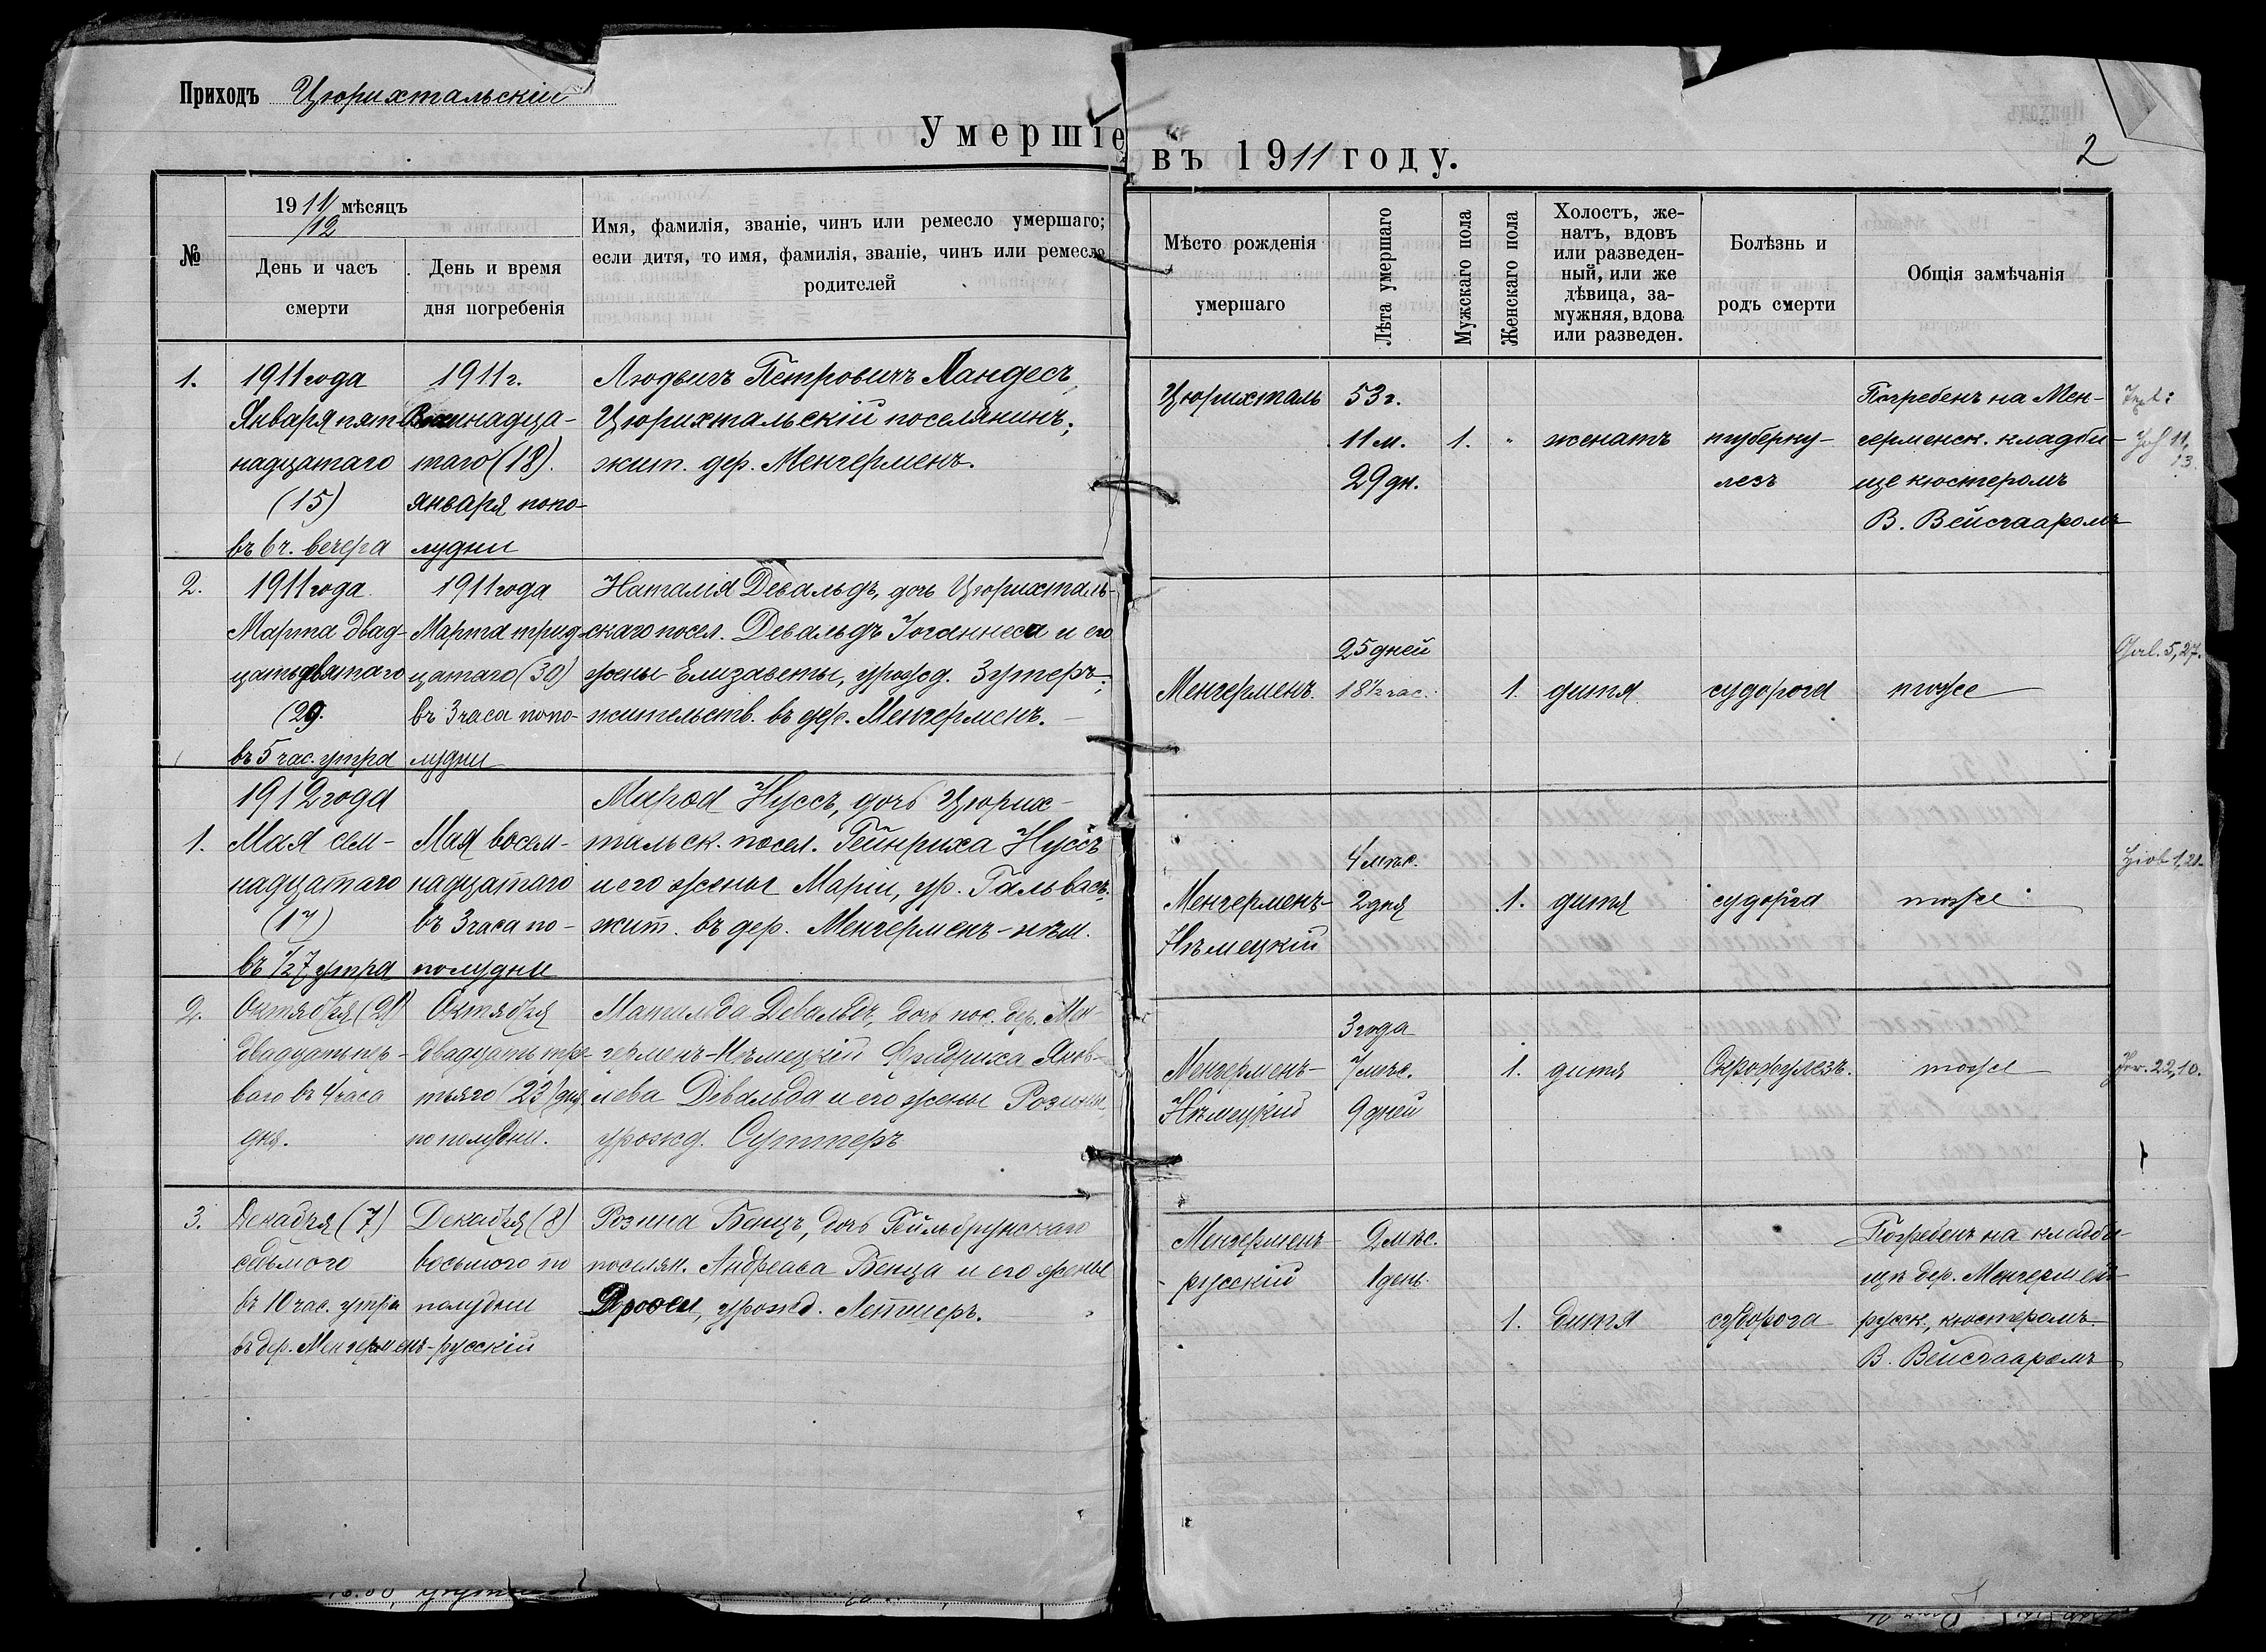 Приходъ Цюрихтальскій
Умершіе въ 1911 году.
2
№
1911/12 мѣсяцъ
День и часъ
смерти
День и время
дня погребенія
Имя, фамилія, званіе, чинъ или ремесло умершаго;
если дитя, то имя, фамилія, званіе, чинъ или ремесло
родителей
Мѣсто рожденія
умершаго
Лѣта умершаго
Мужскаго пола
Женскаго пола
Холостъ, же-
натъ, вдовъ
или разведен-
ный, или же
дѣвица, за-
мужняя, вдова
или разведен.
Болѣзнь и
родъ смерти
Общія замѣчанія
1.
1911 года
Января пят-
надцатаго
(15)
въ 6 ч. вечера
1911 г.
Восемнадца-
таго (18).
января попо-
лудни
Людвигъ Петровичъ Ландесъ,
Цюрихтальскій поселянинъ;
жит. дер. Менгерменъ.
Цюрихталь
53 г.
11 м.
29 дн.
1.
"
женатъ
туберку-
лезъ
Погребенъ на Мен-
герменск. кладби-
ще кюстеромъ
В. Вейсгааромъ
Text:
Joh 11,
13.
2.
1911 года
Марта двад-
цатьдевятаго
(29.
въ 5 час. утра
1911 года
Марта трид-
цатаго (30)
въ 3 часа попо-
лудни
Наталія Девальдъ, дочь Цюрихталь-
скаго посел. Девальдъ Іоганнеса и его
жены Елизаветы, урожд. Зутеръ;
жительств. въ дер. Менгерменъ.
Менгерменъ.
25 дней
18 1/2 час.
1.
дитя
судорога
тоже
Gal. 5, 27.
1.
1912 года
Мая сем-
надцатаго
(17)
въ 1/2 7 утра
Мая восем-
надцатаго
въ 3 часа по-
полудни
Нуссъ, дочь Цюрих-
тальск. посел. Гейнриха Нуссъ
и его жены Маріи, ур. Гальвасъ;
жит. въ дер. Менгерменъ-нѣм.
Менгерменъ-
Нѣмецкій
4 мѣс.
2 дня
1.
дитя
судорга
тоже
Hiob 1, 21.
2.
Октября (21)
двадцать пер-
ваго въ 4 часа
дня.
Октября
двадцать тре-
тьяго (23) дня
по полудни.
Матильда Девальдъ, дочь пос. дер. Мен-
герменъ-Нѣмецкій Фридриха Яков-
лева Девальда и его жены Розины
урожд. Суттеръ
Менгерменъ-
Нѣмецкій
3 года
7 мѣс.
9 дней
1.
дитя
Скрофулезъ.
тоже
Jer. 22, 10.
3.
Декабря (7)
седьмого
въ 10 час. утра
въ дер. Менгерменъ-русскій
Декабря (8)
восьмого по
полудни
Розина Бенцъ, дочь Гейльбрунскаго
поселян. Андреаса Бенца и его жены
урожд. Летшеръ.
Менгерменъ
- русскій
2 мѣс.
1 день.
1.
дитя
судорога
Погребенъ на кладби-
щѣ дер. Менгермен-
русск., кюстеромъ
В. Вейсгааромъ